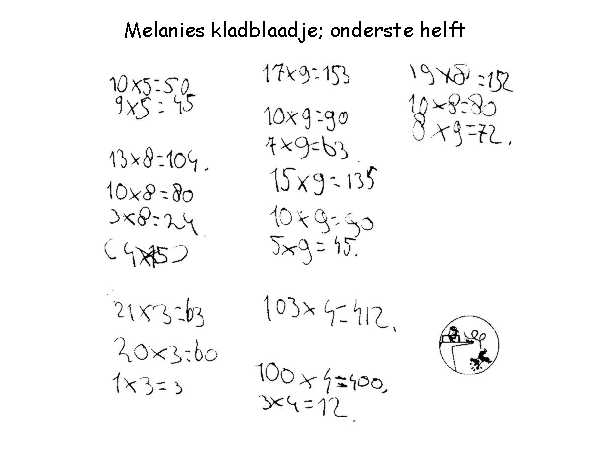 Melanies kladblaadje; onderste helft
10x5=50
9x5=45
13x8=104.
10x8=80
3x8=24
(4x15)
21x3=63
20x3=60
1x3=3
17x9=153
10x9=90
7x9=63
15x9=135
10x9=90
5x9=45.
103x4=412.
100x4=400,
3x4=12.
19x8=152
10x8=80
8x9=72.